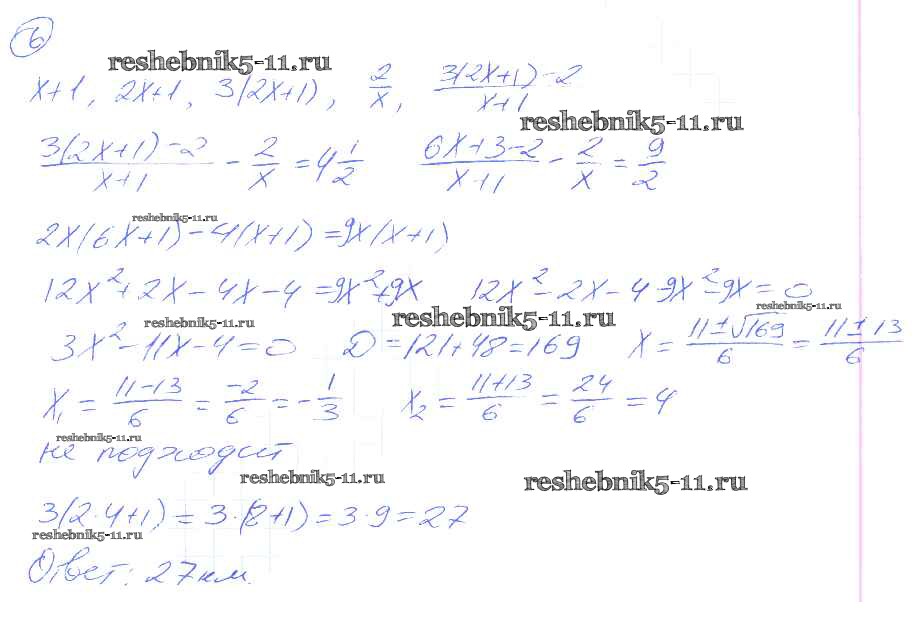 6
reshebnik5-11.ru
x+1, 2x+1, 3(2x+1), 2/x, (3(2x+1)-2)/(x+1)
reshebnik5-11.ru
(3(2x+1)-2)/(x+1) - 2/x = 4 1/2 (6x+3-2)/(x+1) - 2/x = 9/2
reshebnik5-11.ru
2x(6x+1)-4(x+1)=9x(x+1)
12x²+2x-4x-4=9x²+9x 12x²-2x-4-9x²-9x=0
reshebnik5-11.ru reshebnik5-11.ru reshebnik5-11.ru
3x²-11x-4=0 D=121+48=169 x=(11±√169)/6=(11±13)/6
x₁=(11-13)/6=-2/6=-1/3 x₂=(11+13)/6=24/6=4
reshebnik5-11.ru
не подходит
reshebnik5-11.ru reshebnik5-11.ru
3(2·4+1)=3·(8+1)=3·9=27
reshebnik5-11.ru
Ответ: 27км.